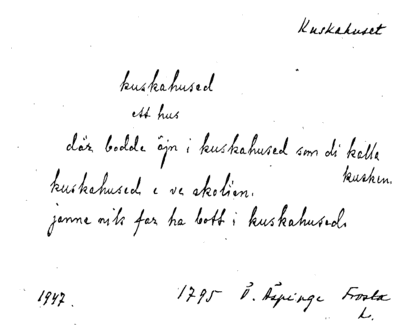 Kuskahuset
kuskahused
ett hus
där bodde äjn i kuskahused som di kalla
kusken.
kuskahused e ve skolien.
janne nils far ha bott i kuskahused.
1947. 1795 Ö. Äspinge Frosta
L.